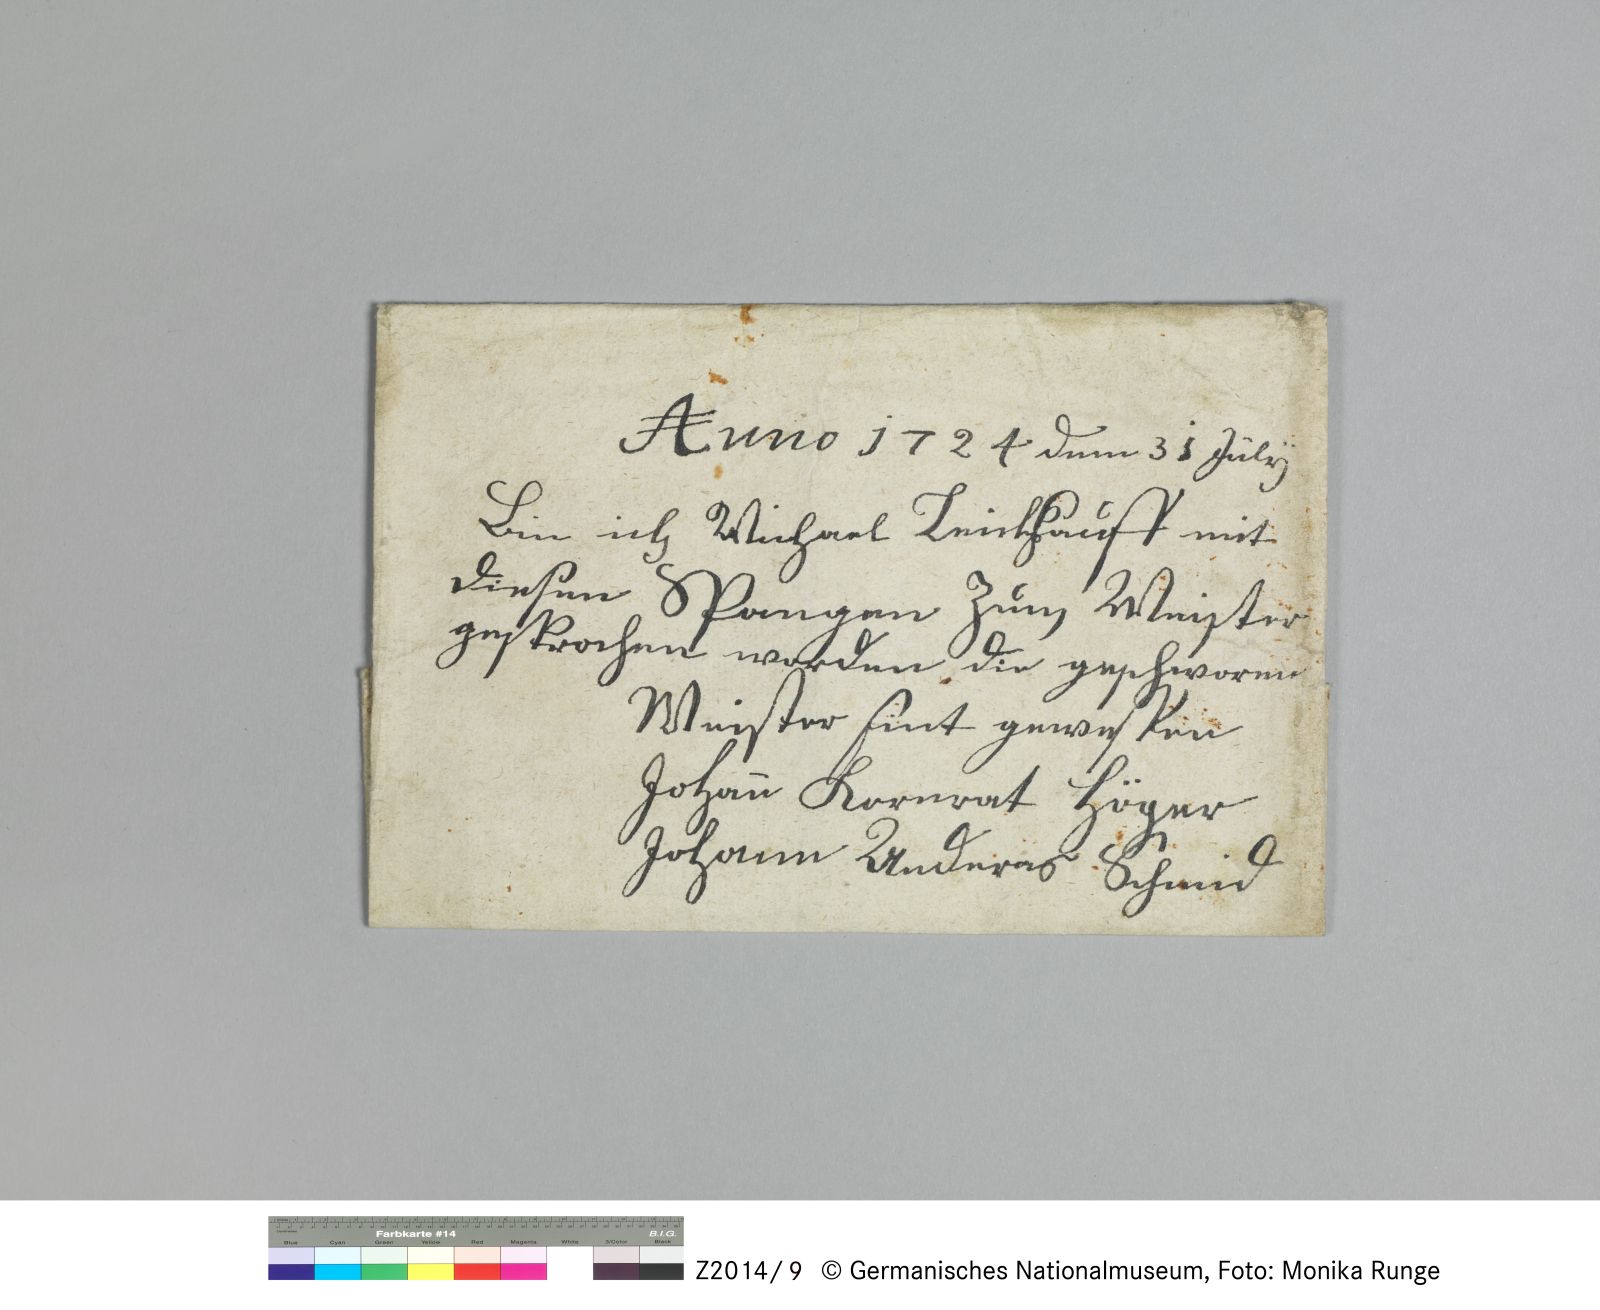 Anno 1724 denn 31 Julÿ
Bin ich Michael Teickhauff mit
diesen Spangen Zum Meister
gesprochen worden die geschworen
Meister sint gewessen
Johan̄ Kornrat Höger
Johann Anderas Schmid
Farbkarte #14 B.I.G.
Blue Cyan Green Yellow Red Magenta White 3/Color Black
Z2014/9 © Germanisches Nationalmuseum, Foto: Monika Runge